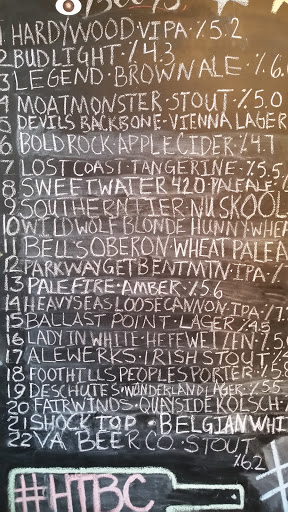 1 HARDYWOOD · VIPA · %5.2
2 BUD LIGHT · % 4.3
3 LEGEND · BROWN ALE · %6.
4 MOATMONSTER · STOUT · %5.0
5 DEVILS BACKBONE · VIENNA LAGER
6 BOLD ROCK · APPLE CIDER · %4.7
7 LOST COAST · TANGERINE · %5.5
8 SWEETWATER 420 · PALE ALE ·
9 SOUTHERN TIER · NU SKOOL
10 WILD WOLF BLONDE HUNNY · WHEA
11 BELL'S OBERON · WHEAT PALE A
12 PARKWAY GET BENT MTN · IPA · %
13 PALE FIRE · AMBER · %5.6
14 HEAVY SEAS LOOSE CANNON · IPA · %7.
15 BALLAST POINT · LAGER · %4.5
16 LADY IN WHITE · HEFEWEIZEN · %5.
17 ALEWERKS · IRISH STOUT · %
18 FOOTHILLS PEOPLES PORTER · %5.8
19 DESCHUTES · WONDERLAND LAGER · %5.5
20 FAIRWINDS · QUAYSIDE KOLSCH ·
21 SHOCK TOP · BELGIAN WHI
22 VA. BEER CO. STOUT
%6.2
#HTBC
#